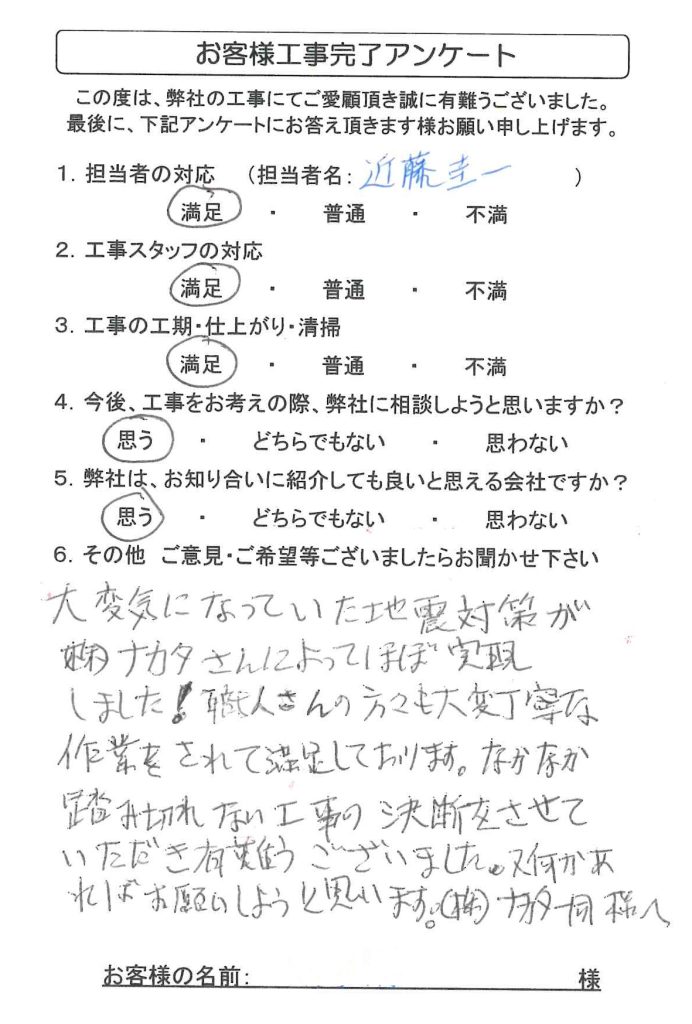 お客様工事完了アンケート
この度は、弊社の工事にてご愛顧頂き誠に有難うございました。
最後に、下記アンケートにお答え頂きます様お願い申し上げます。
1. 担当者の対応 （担当者名： 近藤圭一 ）
満足 ・ 普通 ・ 不満
2. 工事スタッフの対応
満足 ・ 普通 ・ 不満
3. 工事の工期・仕上がり・清掃
満足 ・ 普通 ・ 不満
4. 今後、工事をお考えの際、弊社に相談しようと思いますか？
思う ・ どちらでもない ・ 思わない
5. 弊社は、お知り合いに紹介しても良いと思える会社ですか？
思う ・ どちらでもない ・ 思わない
6. その他 ご意見・ご希望等ございましたらお聞かせ下さい
大変気になっていた地震対策が
(株)ナカタさんによってほぼ実現
しました！職人さんの方々も大変丁寧な
作業をされて満足しております。なかなか
踏み切れない工事の決断をさせて
いただき有難うございました。又何かあ
ればお願いしようと思います。(株)ナカタ一同様へ
お客様の名前： 様